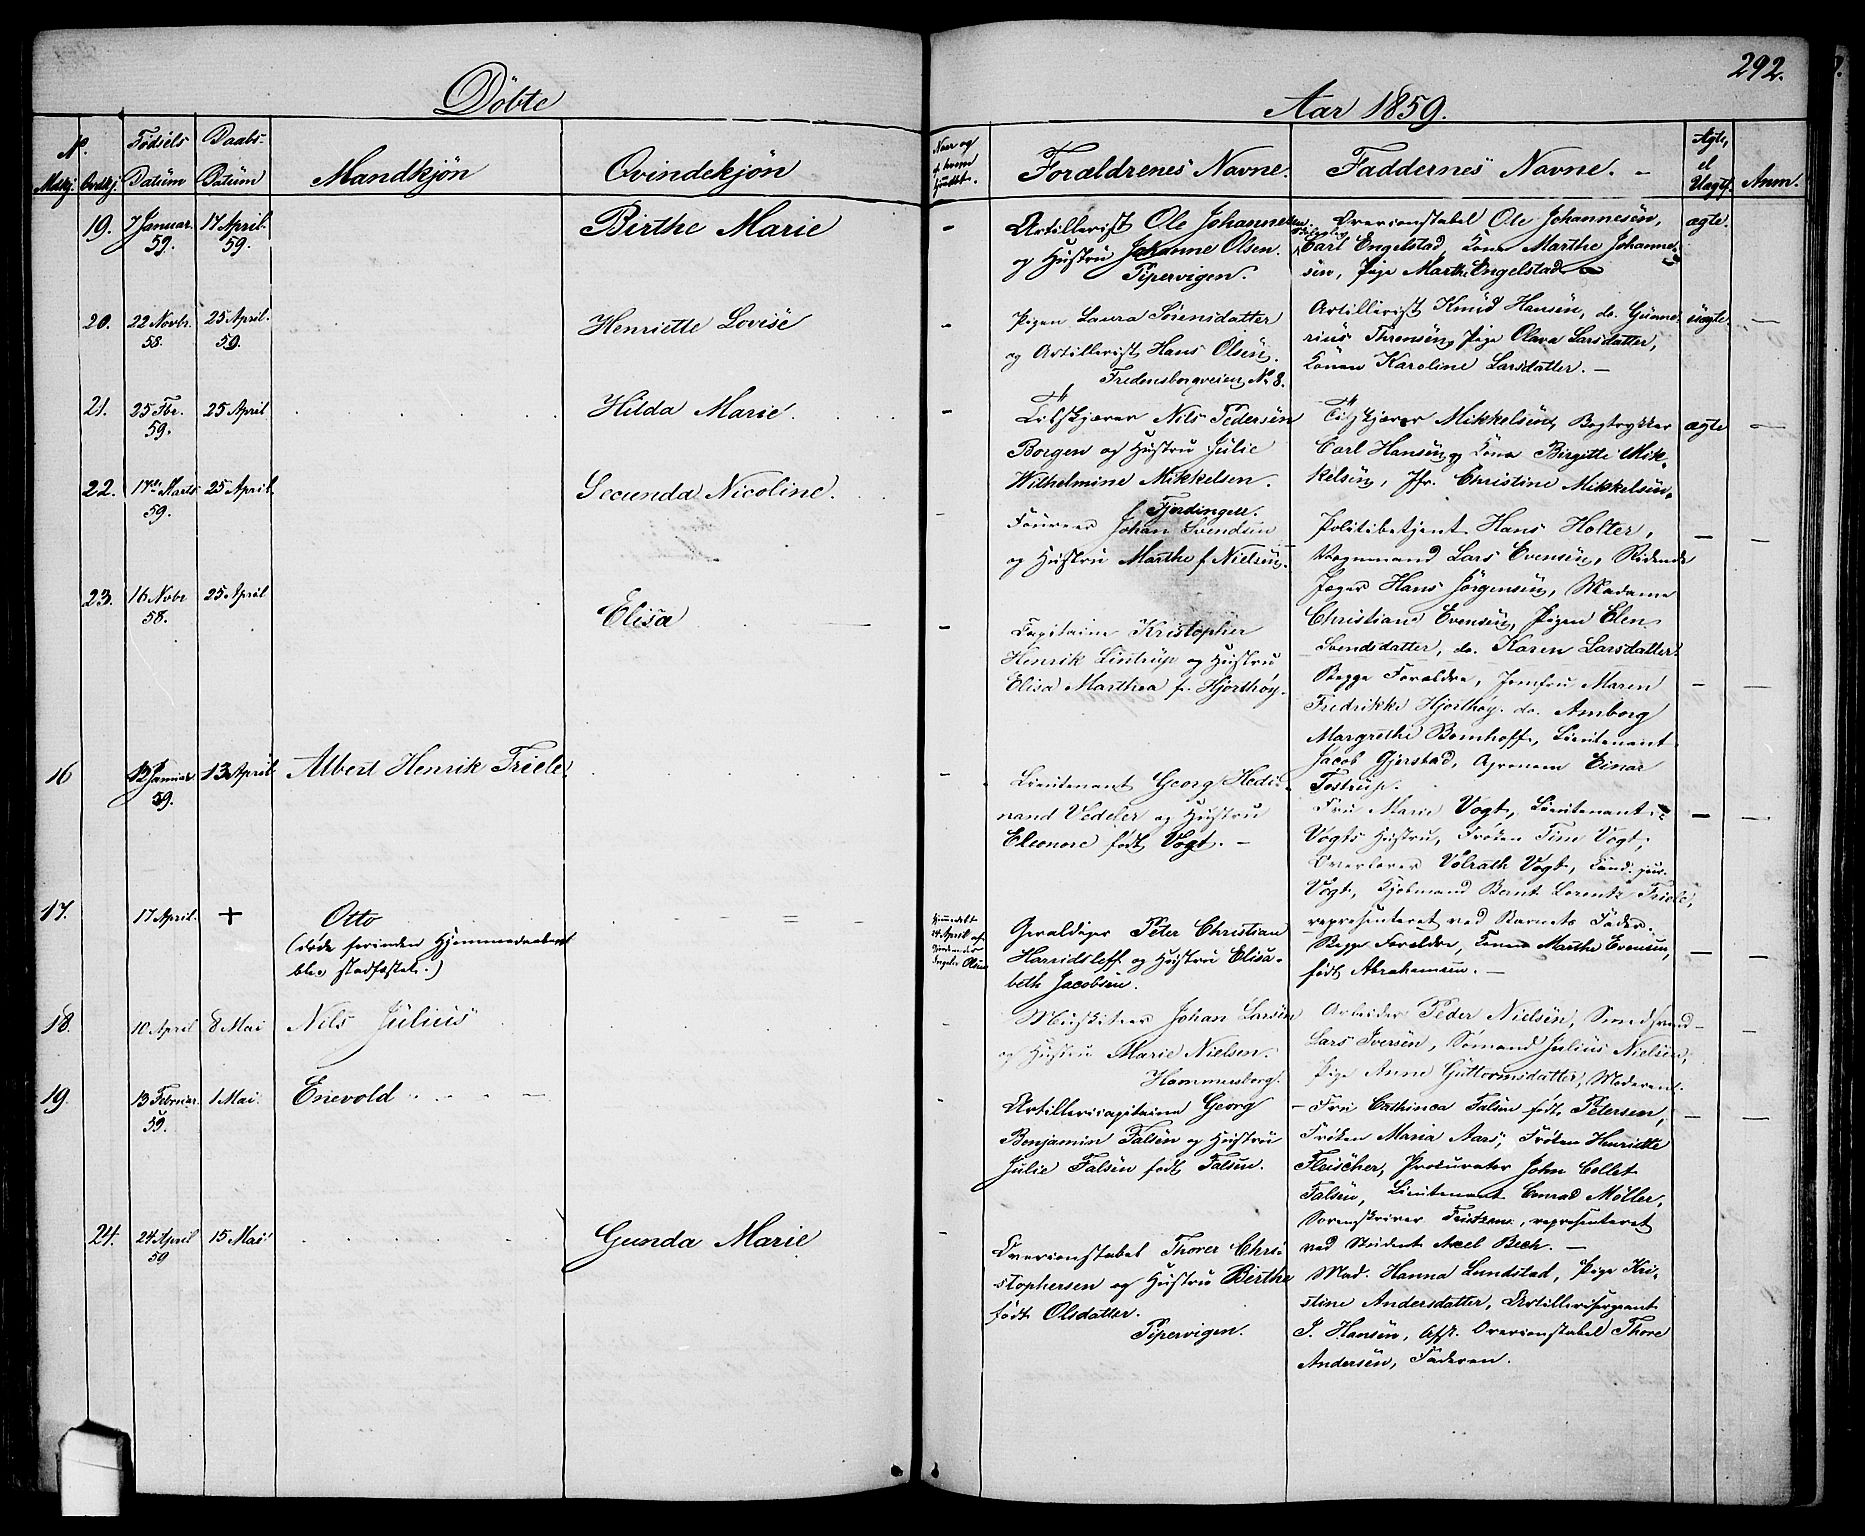 292.
Döbte
Aar 1859.
No.
Mdkj.
Qvdkj.
Födsels
Datum
Daabs-
Datum
Mandkjön
Qvindekjön
Naar og
af hvem
hjdöbt.
Forældrenes Navne.
Faddernes Navne.
Ægte,
el
Uægte
Anm.
19.
7 Januar
59.
17 April
59.
Birthe Marie
Artillerist Ole Johannesen
og Hustru Johanne Olsen.
Pipervigen.
Overconstabel Ole Johannesen,
Carl Engelstad, Kone Marthe Johanne-
sen, Pige Marth. Engelstad
ægte.
20.
22 Novbr.
58.
25 April
59.
Henriette Lovise
Pigen Laura Sörensdatter
og Artillerist Hans Olsen.
Fredensborgveien No 8.
Artillerist Knud Hansen, do. Gunne-
rius Thronsen, Pige Olava Larsdatter,
Konen Karoline Larsdatter.
uægte.
21.
25 Fbr.
59.
25 April
Hilda Marie
Tilskjærer Nils Pedersen
Borgen og Hustru Julie
Wilhelmine Mikkelsen.
Tilskjærer Mikkelsen, Bogtrykker
Carl Hansen, Kone Birgitte Mik-
kelsen, Jfr. Christine Mikkelsen.
ægte
22.
17de Marts
59.
25 April
Secunda Nicoline.
Fjerdingen.
Foureer Johan Svendsen
og Hustru Marthe f Nielsen.
Politibetjent Hans Holter,
Vognmand Lars Evensen, Ridende
Jæger Hans Jörgensen, Madame
Christiane Evensen, Pigen Elen
Svendsdatter, do. Karen Larsdatter.
23.
16 Novbr
58.
25 April
Elisa
Capitaine Kristopher
Henrik Lintrup og Hustru
Elisa Marthea f. Hjorthöy.
Begge Forældre, Jomfru Maren
Fredrikke Hjorthöy. do. Amborg
Margrethe Bomhoff, Lieutenant
Jacob Gjerstad, Agronom Einar
Tostrup.
16
12 Januar
59.
13 April
Albert Henrik Friele.
Lieutenant Georg Hedi-
nand Vedeler og Hustru
Eleonore født Vogt.
Fru Marie Vogt, Lieutenant
Vogts Hustru, Fröken Tim Vogt,
Overlærer Volrath Vogt, Cand. jur.
Vogt, Kjöbmand Bernt Lorentz Friele,
representeret ved Barnets Fader.
17.
17 April
+
Otto
(döde forinden Hjemmedaaben
blev stadfæstet.)
Hjemmedöbt
24 April af
Jordemoder
Ingeb. Olsen
Geraldiger Peter Christian
Harridsleff og Hustru Elisa-
beth Jacobsen.
Begge Forældre, Konen Marthe Evensen,
født Abrahamsen.
18.
10 April
8 Mai
Nils Julius
Musketeer Johan Larsen
og Hustru Marie Nielsen.
Hammersborg.
Arbeider Peder Nielsen, Smedsvend
Lars Iversen, Sömand Julius Nielsen,
Pige Anne Guttormsdatter, Moderen.
19.
13 Februar
59.
1 Mai.
Enevold
Artillericapitaine Georg
Benjamin Falsen og Hustru
Julie Falsen født Falsen.
Fru Cathinca Falsen født Petersen,
Fröken Maria Aars, Fröken Henriette
Fleischer, Procurator John Collet
Falsen, Lieutenant Conrad Möller,
Sorenskriver, representeret
ved Student Axel Bech.
24.
24 April
59
15 Mai
Gunda Marie
Overconstabel Thorer Chri-
stophersen og Hustru Birthe
født Olsdatter.
Pipervigen.
Mad. Hanna Lundstad, Pige Kri-
stine Andersdatter, Artillerisergeant
P. Hansen, Afsk. Overconstabel Thore
Andersen, Faderen.